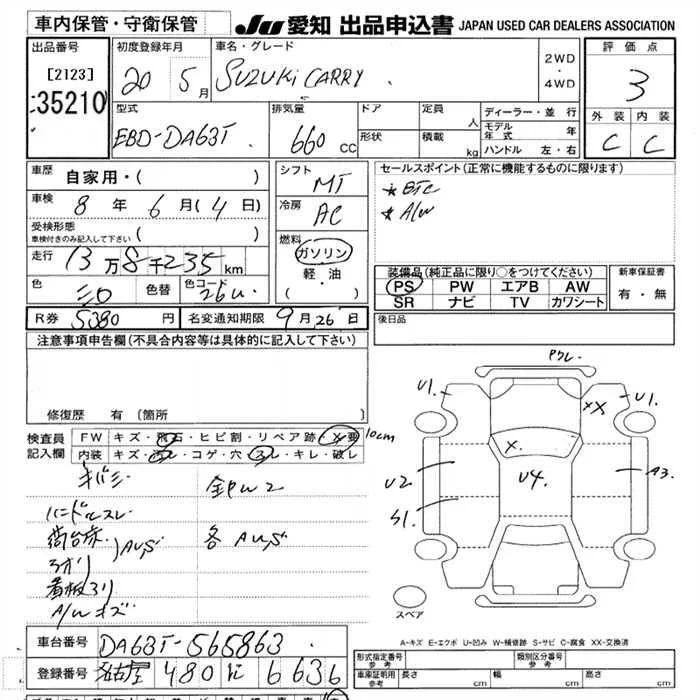 車内保管・守衛保管 JU 愛知 出品申込書 JAPAN USED CAR DEALERS ASSOCIATION
出品番号 初度登録年月 車名・グレード 2WD ・ 4WD 評価点
[2123] 20 5月 SUZUKI CARRY 3
35210
型式 排気量 ドア 定員 人 ディーラー・並行 外装 内装
EBD-DA63T 660 CC 形状 積載 kg モデル年式 年 C C
ハンドル 左・右
車歴 自家用・( ) シフト MT セールスポイント(正常に機能するものに限ります)
車検 8年 6月(4日) 冷房 AC ★ETC
受検形態 ( ) ★A/W
車検付きのみ記入して下さい
走行 13万8千235km 燃料 ガソリン 軽・油 ・( )
色 色替 色コード 26U 装備品(純正品に限り○をつけてください) 新車保証書
PS PW エアB AW 有・無
SR ナビ TV カワシート
R券 5380円 名変通知期限 9月26日 後日品
注意事項申告欄(不具合内容等は具体的に記入して下さい)
修復歴 有 [箇所
検査員 FW キズ・飛石・ヒビ割・リペア跡・X要 10cm
記入欄 内装 キズ・汚レ・コゲ・穴・スレ・キレ・破レ
キバミ
ハンドルスレ
荷台床
アオリ
A・U・S
各AUS
看板ヌリ
A/Wキズ
U1. XX U1.
X.
U2 U4. A3.
S1.
スペア
A-キズ E-エクボ U-凹み W-補修跡 S-サビ C-腐食 XX-交換済
車台番号 DA63T-565863
登録番号 名古屋 480 に 6636
形式指定番号 参考 類別区分番号 参考
車庫証明用 参考 長さ cm 幅 cm 高さ cm